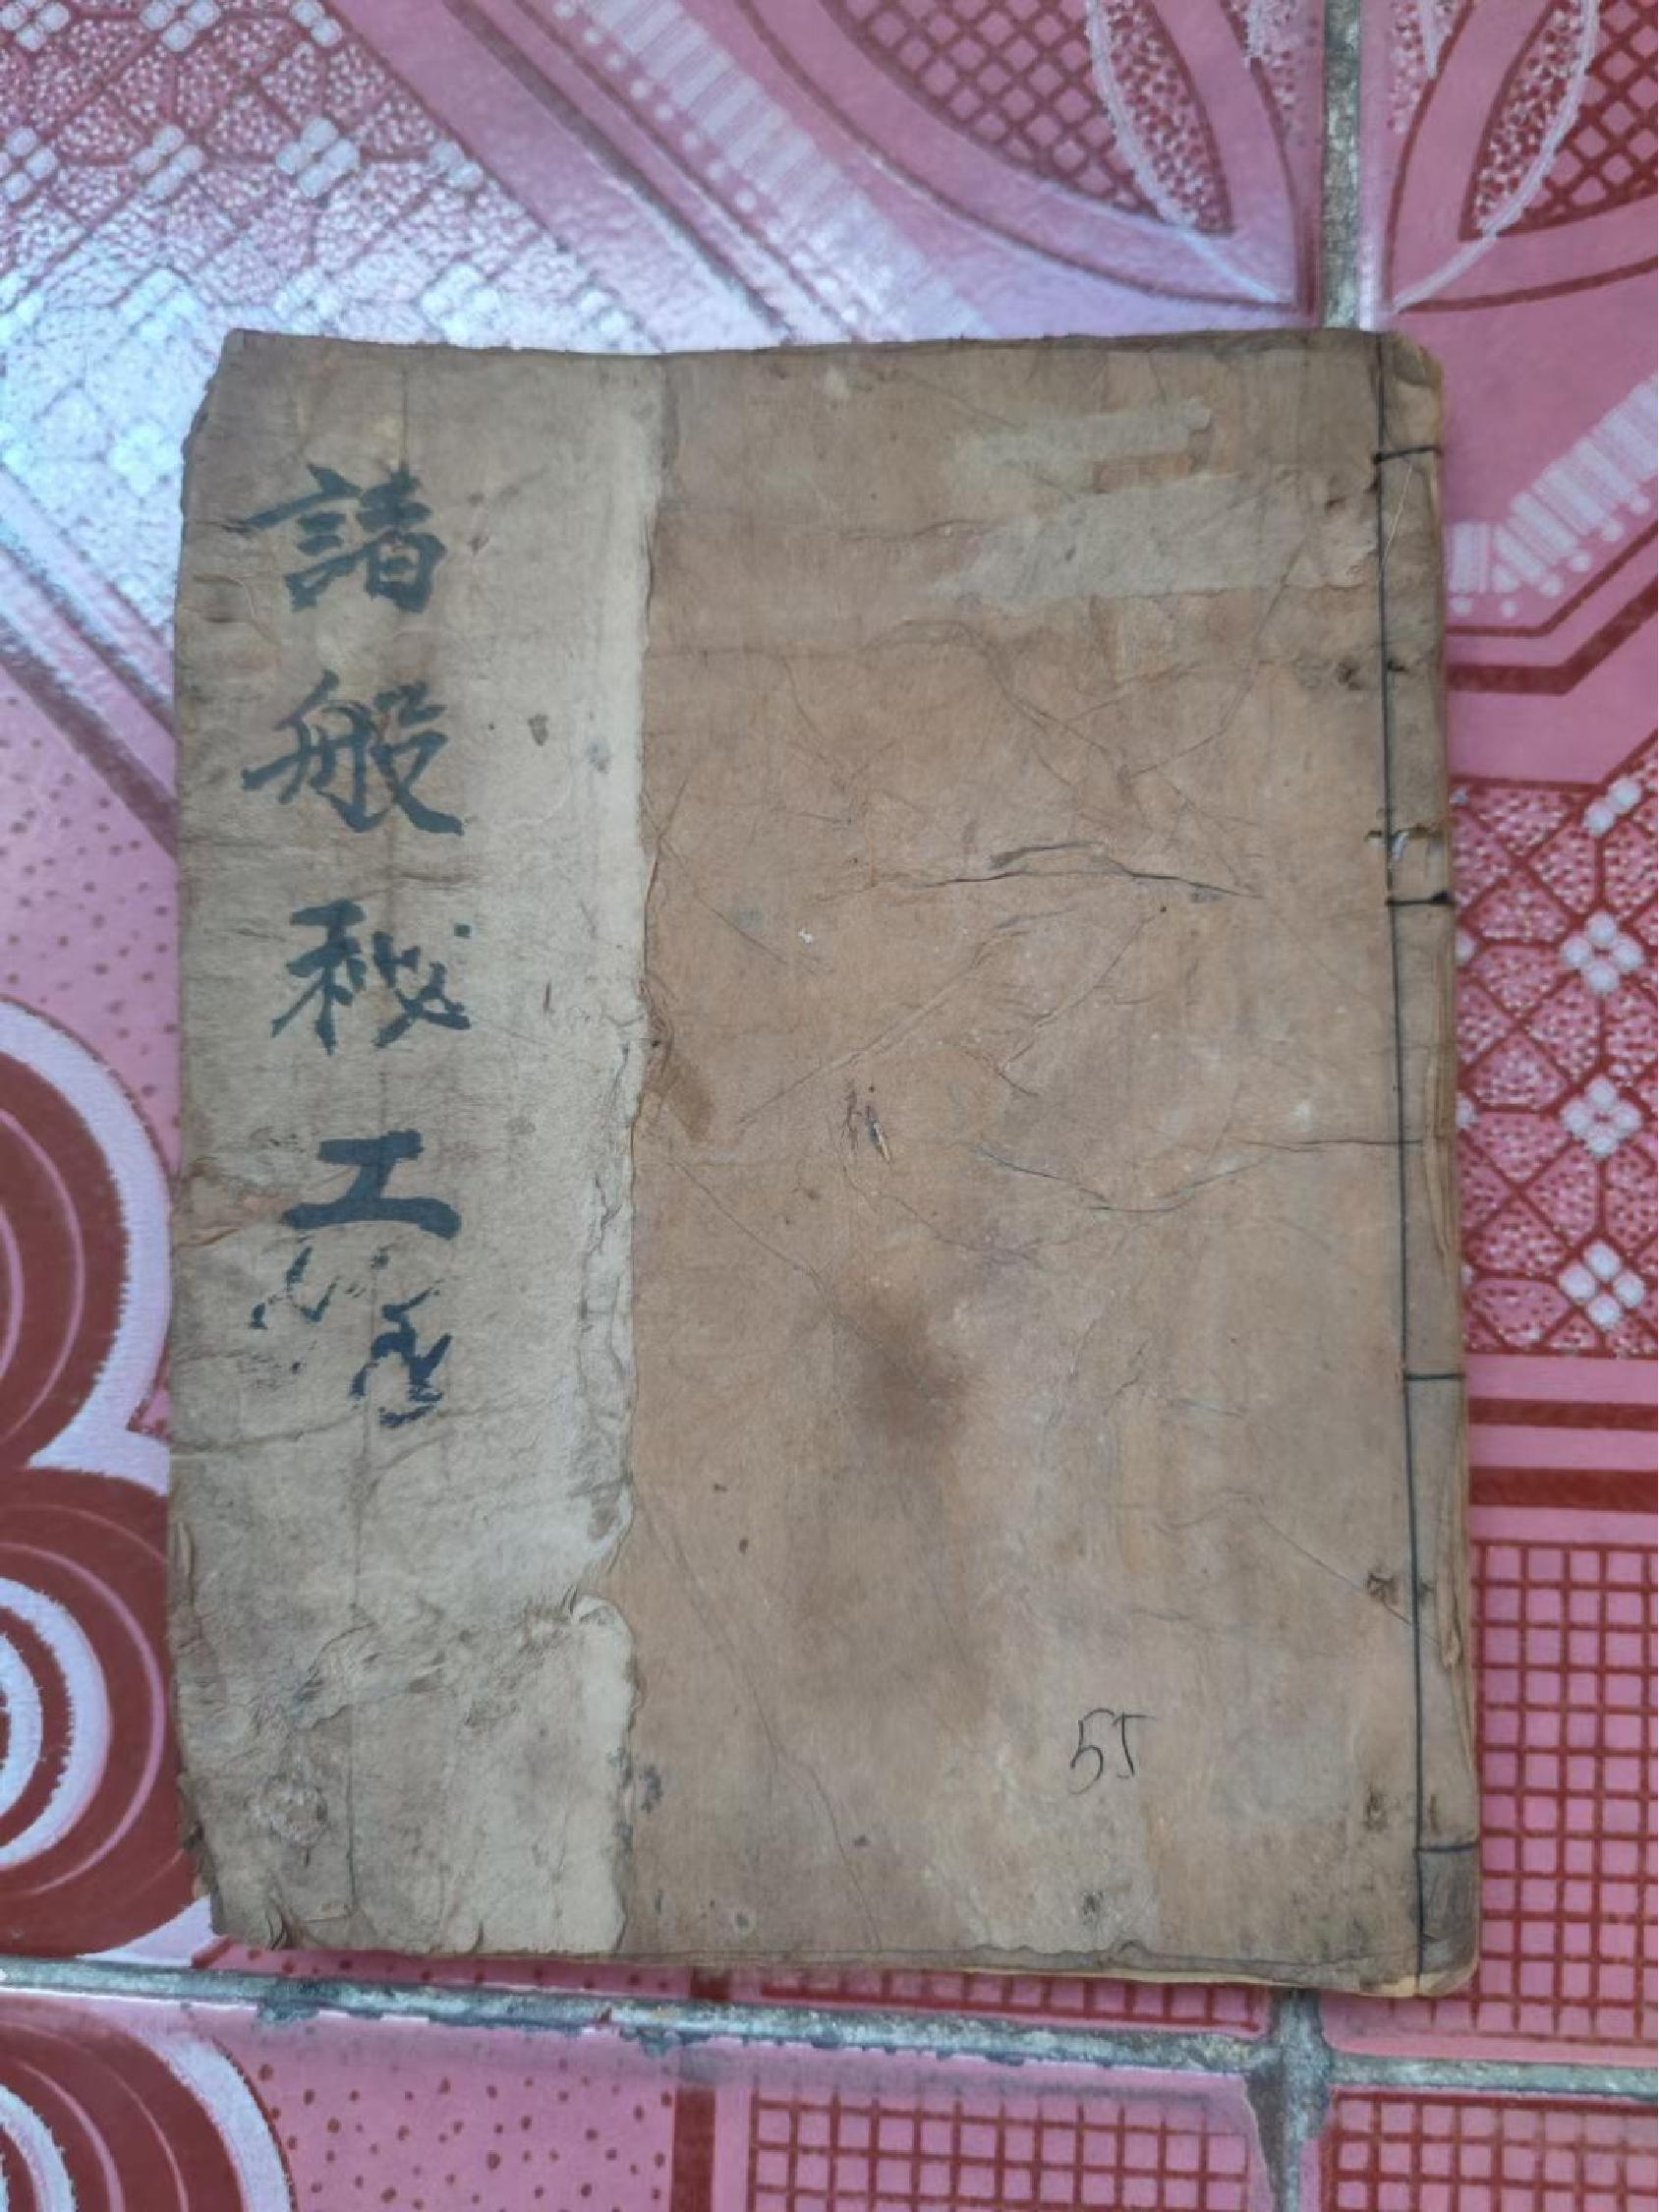 諸般秘工
55